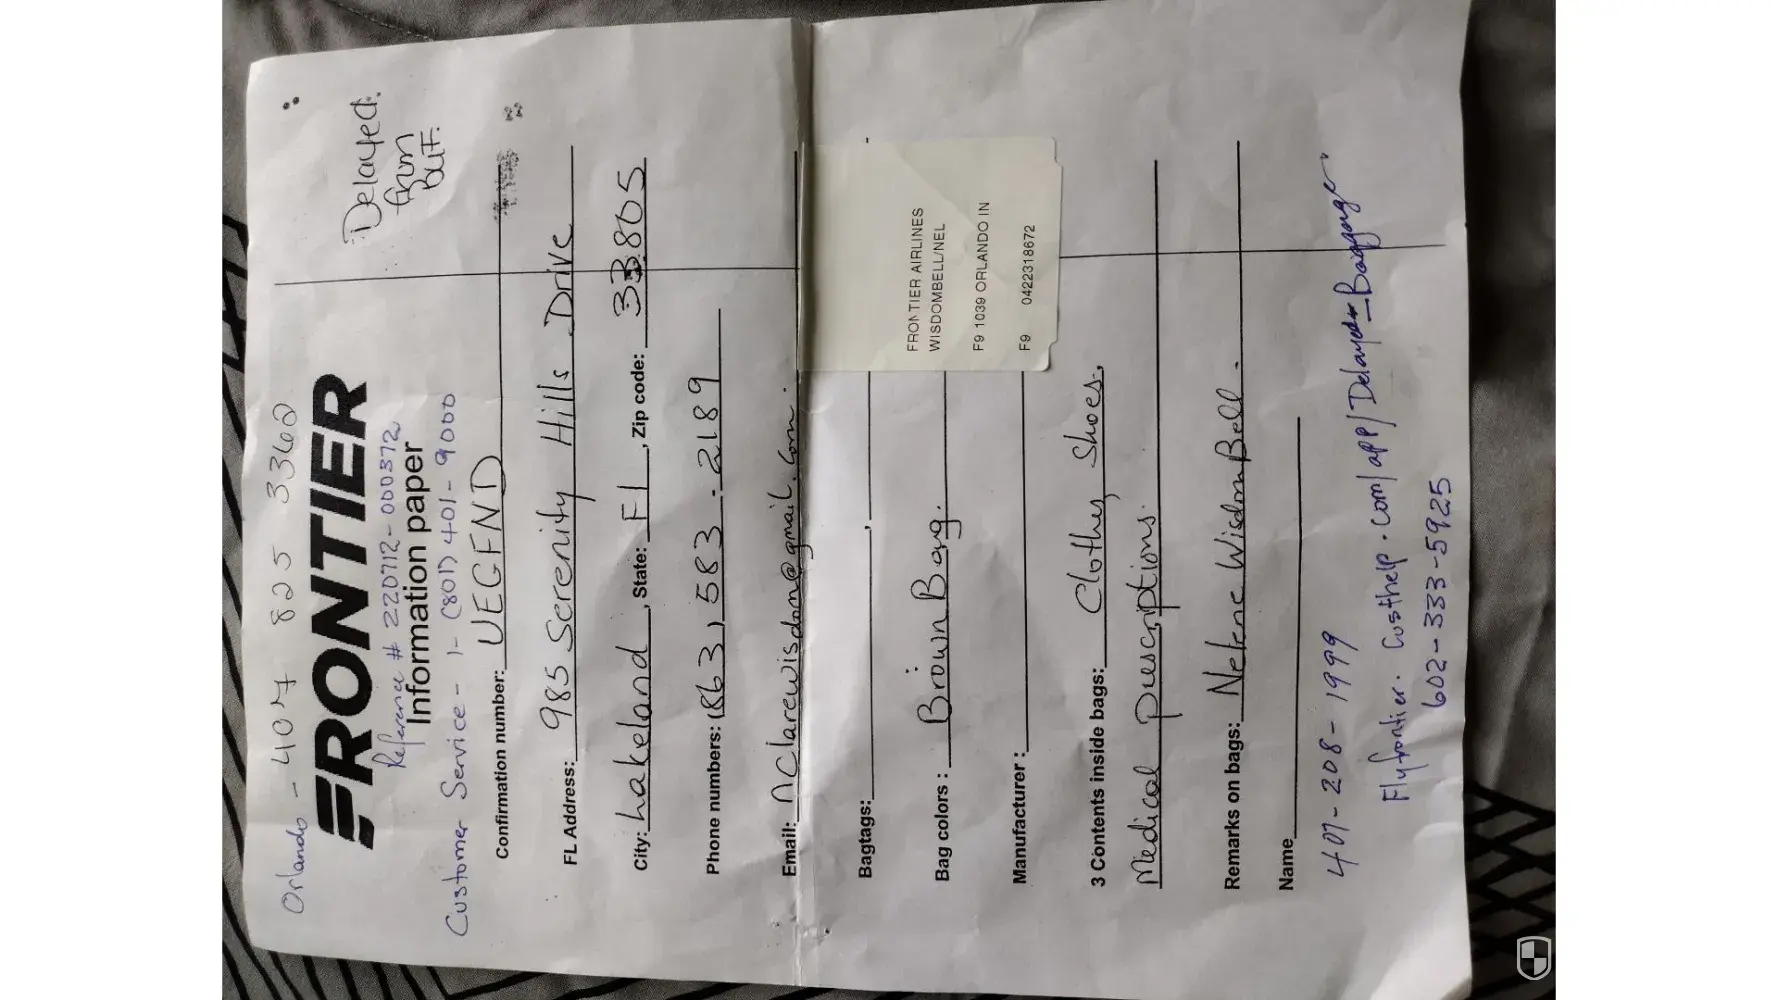 Orlando - 407 825 3360
FRONTIER
Delayed
from
BUF.
Reference # 220712-000372
Information paper
Customer Service - 1-(801) 401-9000
Confirmation number: UEGFND
FL Address: 985 Serenity Hills Drive
City: Lakeland, State: Fl, Zip code: 33805
Phone numbers: (863) 583-2189
Email: nclarewisdom@gmail.com.
Bagtags: ,
FRONTIER AIRLINES
WISDOMBELL/NEL
F9 1039 ORLANDO IN
F9 0422318672
Bag colors : Brown Bag.
Manufacturer :
3 Contents inside bags: Clothes, Shoes,
Medical prescriptions.
Remarks on bags: Wisdom Bell.
Name
401-208-1999
Flyfrontier.custhelp.com/app/Delayed-Baggage
602-333-5925